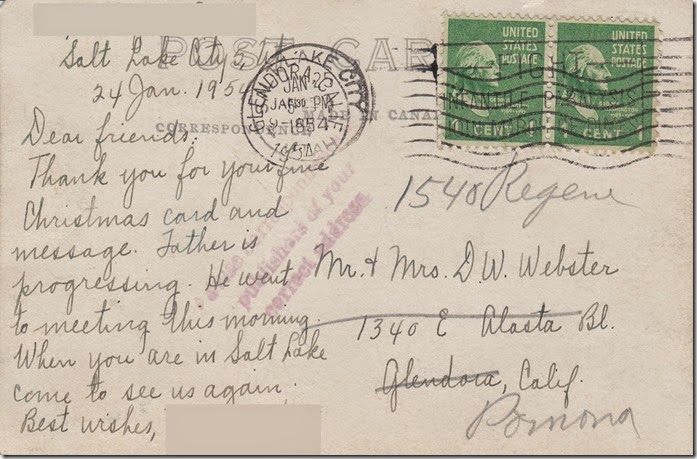 Salt Lake City 5, Ut.
24 Jan. 195
Dear friends:
Thank you for your fine
Christmas card and
message. Father is
progressing. He went
to meeting this morning.
When you are in Salt Lake
come to see us again.
Best wishes,
POST CARD
MADE IN CANADA
CORRESPONDENCE
SALT LAKE CITY
GLENDORA, CALIF.
JAN
PM
1954
UTAH
UNITED STATES POSTAGE
1 CENT
UNITED STATES POSTAGE
1 CENT
publishers of your
correct address
1540 Regene
Mr. & Mrs. D. W. Webster
1340 E Alosta Bl.
Glendora, Calif.
Pomona